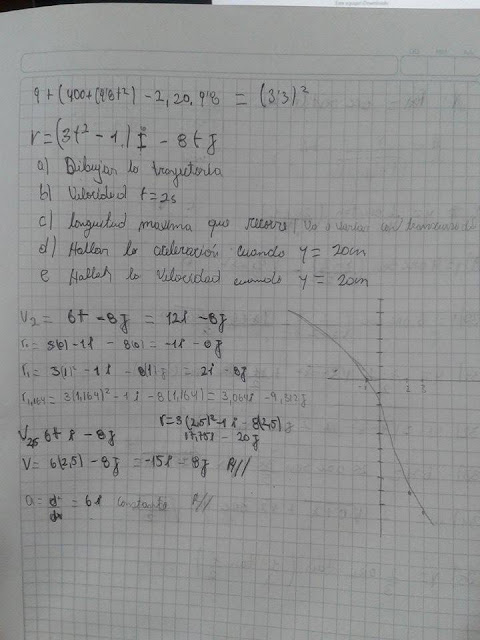 9 + (400 + (9'8t²) - 2,20.9'8 = (3'3)²
r = (3t² - 1) i - 8t j
a) Dibujar la trayectoria
b) Velocidad t = 2s
c) longitud maxima que recorre
d) Hallar la aceleración cuando y = 20cm
e Hallar la velocidad cuando y = 20cm
V₂ = 6t - 8j = 12i - 8j
r₀ = 3(0) - 1i - 8(0) = -1i - 0j
r₁ = 3(1)² - 1i - 8(1)j = 2i - 8j
r₁,₁₆₄ = 3(1,164)² - 1i - 8(1,164) = 3,064i - 9,312j
V₂,₅ 6t i - 8j r = 3(2,5)² - 1i - 8(2,5)
17,75i - 20j
V = 6(2,5) - 8j = -15i - 8j R//
a = = 6i constante R//